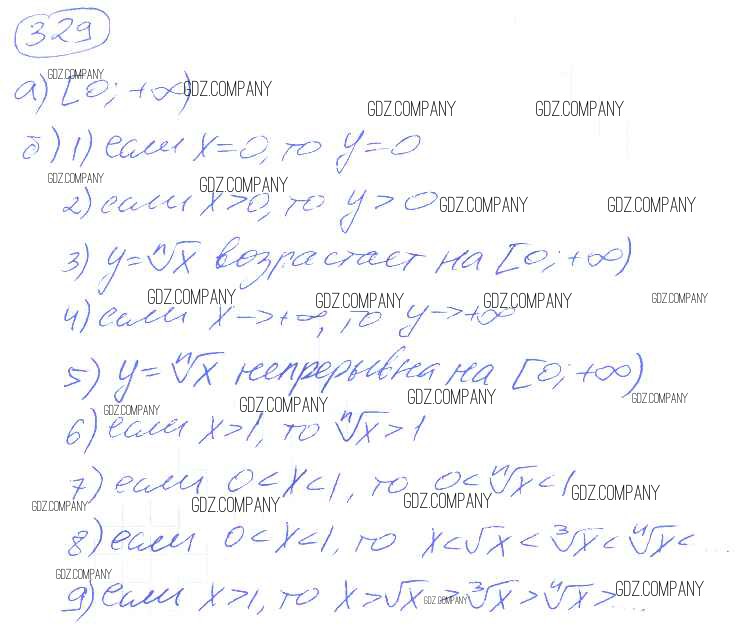 329
GDZ.COMPANY
а) [0; +∞) GDZ.COMPANY
GDZ.COMPANY GDZ.COMPANY
б) 1) если x=0, то y=0
GDZ.COMPANY GDZ.COMPANY
2) если x>0, то y>0 GDZ.COMPANY GDZ.COMPANY
3) y=ⁿ√x возрастает на [0; +∞)
GDZ.COMPANY GDZ.COMPANY GDZ.COMPANY GDZ.COMPANY
4) если x→+∞, то y→+∞
5) y=ⁿ√x непрерывна на [0; +∞)
GDZ.COMPANY GDZ.COMPANY GDZ.COMPANY GDZ.COMPANY
6) если x>1, то ⁿ√x>1
7) если 0<x<1, то 0<ⁿ√x<1 GDZ.COMPANY
GDZ.COMPANY GDZ.COMPANY GDZ.COMPANY
8) если 0<x<1, то x<√x<³√x<⁴√x<...
GDZ.COMPANY GDZ.COMPANY
9) если x>1, то x>√x>³√x>⁴√x>...
GDZ.COMPANY